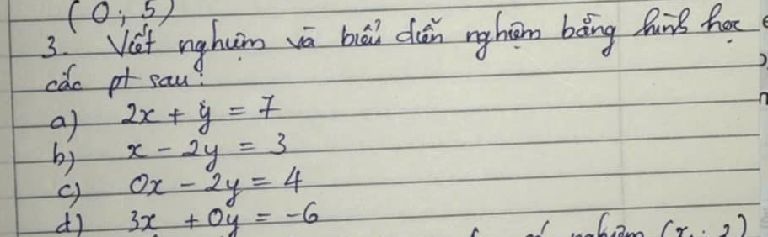 (0; 5)
3. Viết nghiệm và biểu diễn nghiệm bằng hình học
các pt sau:
a) 2x + y = 7
b) x - 2y = 3
c) 0x - 2y = 4
d) 3x + 0y = -6
nghiệm (x; 2)